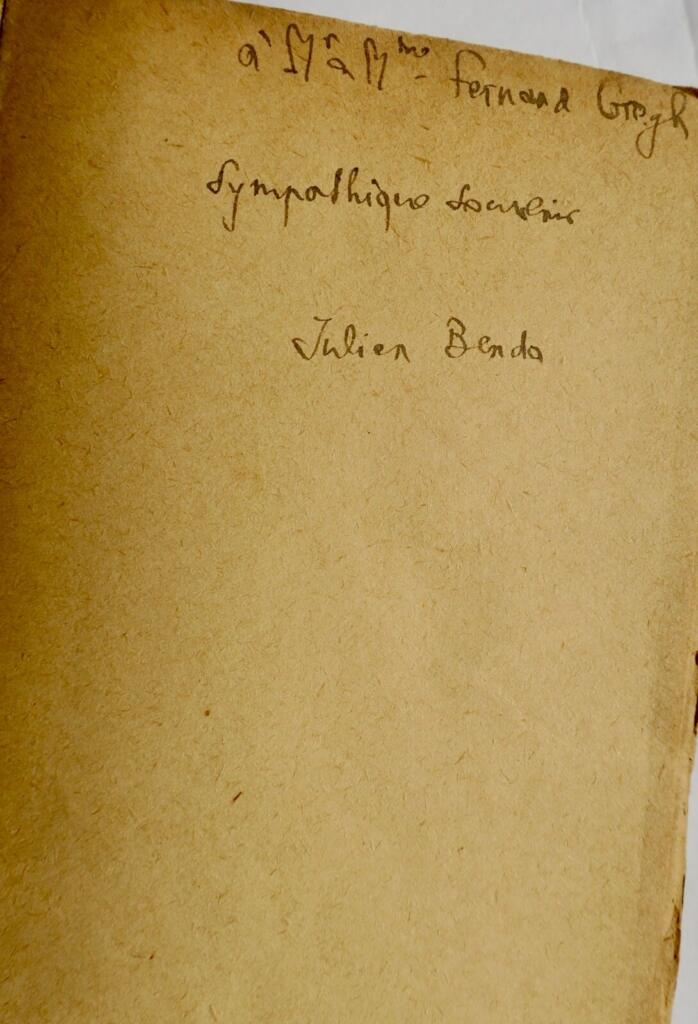 à Mr & Mme Fernand Gregh
Sympathique souvenir
Julien Benda